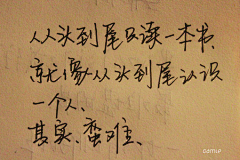 从头到尾只读一本书、
就像从头到尾认识
一个人、
其实、蛮难、